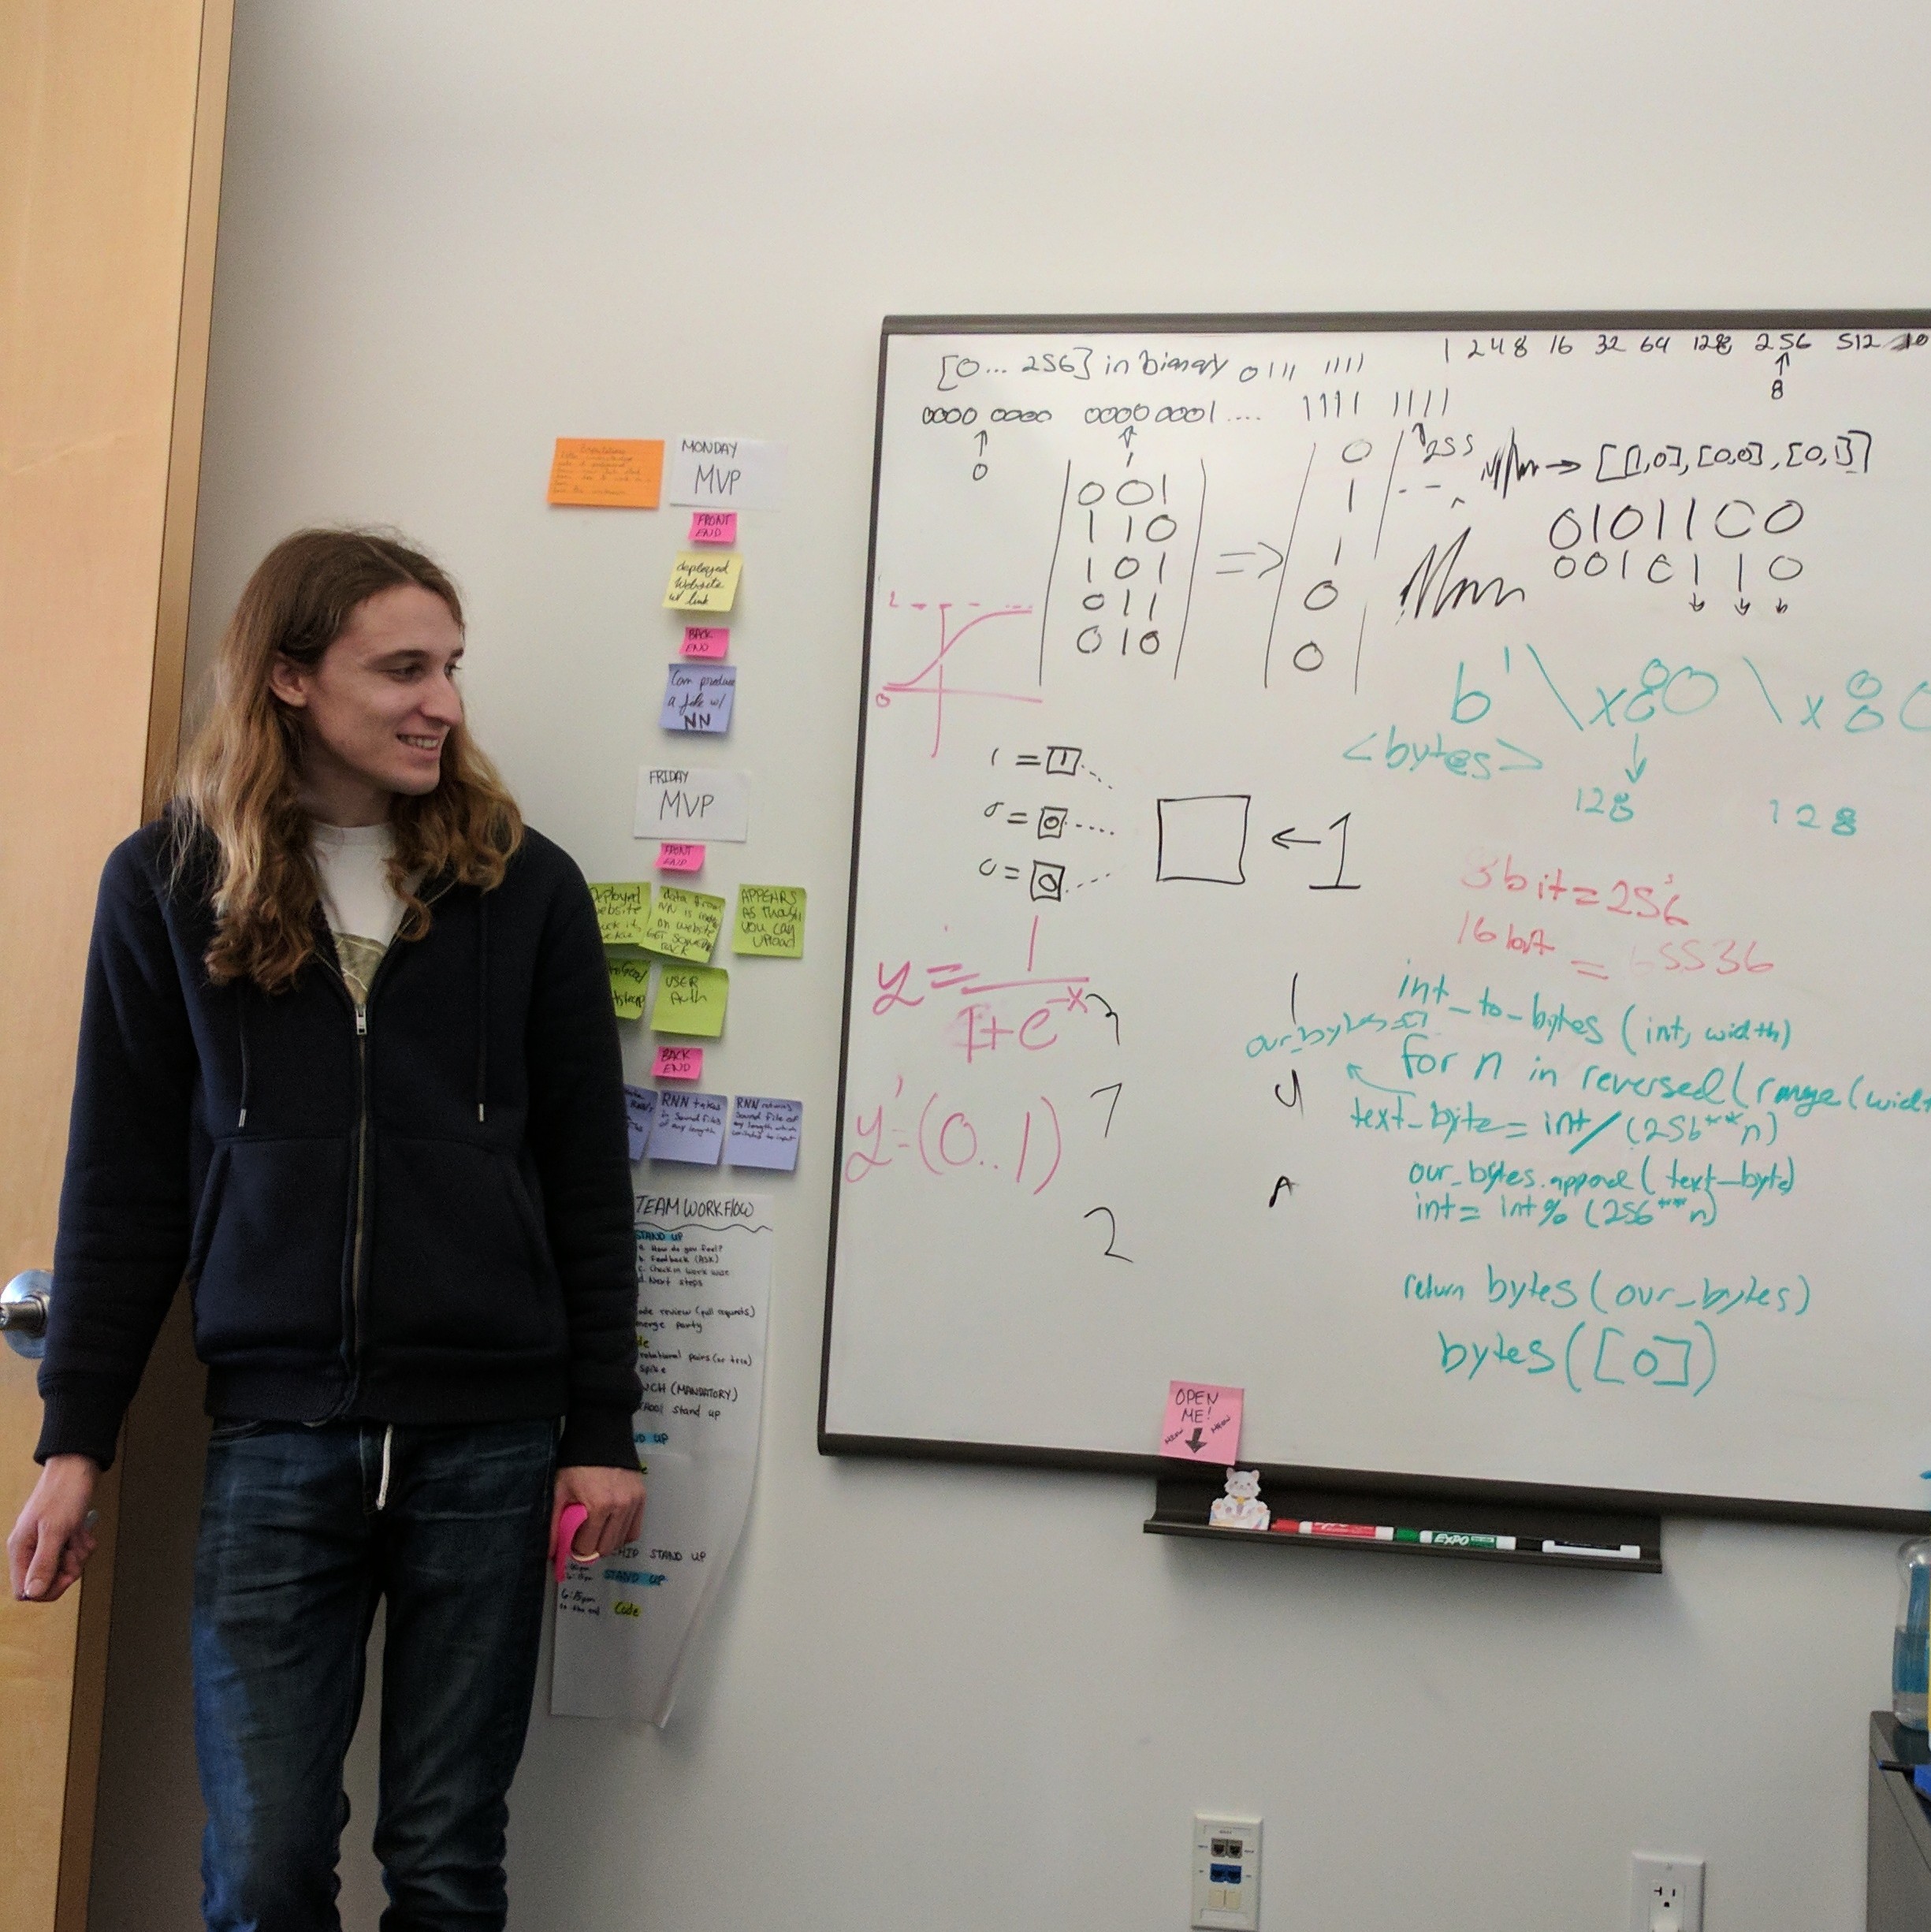 MONDAY
MVP
FRONT
END
deployed
Website
w/ link
BACK
END
Can produce
a file w/
NN
FRIDAY
MVP
FRONT
END
data from
NN is
on website
APPEARS
AS THOUGH
YOU CAN
UPLOAD
USER
Auth
BACK
END
RNN takes
in sound files
of any length
RNN returns
sound file of
any length which
TEAM WORKFLOW
STAND UP
a. How do you feel?
b. Feedback (ASK)
c. Check in work wise
d. Next steps
review (pull requests)
merge party
rotational pairs (or trio)
Spike
(MANDATORY)
stand up
UP
STAND UP
STAND UP
6:15pm
to the end Code
[0... 256] in binary 0111 1111
1 2 4 8 16 32 64 128 256 512
8
0000 0000 0000 0001 .... 1111 1111
0 1 255
[[1,0],[0,0],[0,1]]
0 0 1
1 1 0
1 0 1
0 1 1
0 1 0
=>
0
1
1
0
0
0101100
0010110
1
0
b'\x80\x80
<bytes>
128 128
1 = 1
0 = 0
0 = 0
← 1
8 bit = 256
16 bit = 65536
y = 1
1+e^-x
y' = (0..1)
3
7
2
1
4
A
int_to_bytes (int, width)
our_bytes=[]
for n in reversed(range(widt
text_byte = int/(256**n)
our_bytes.append(text_byte)
int = int%(256**n)
return bytes(our_bytes)
bytes([0])
OPEN
ME!
MEOW MEOW
EXPO